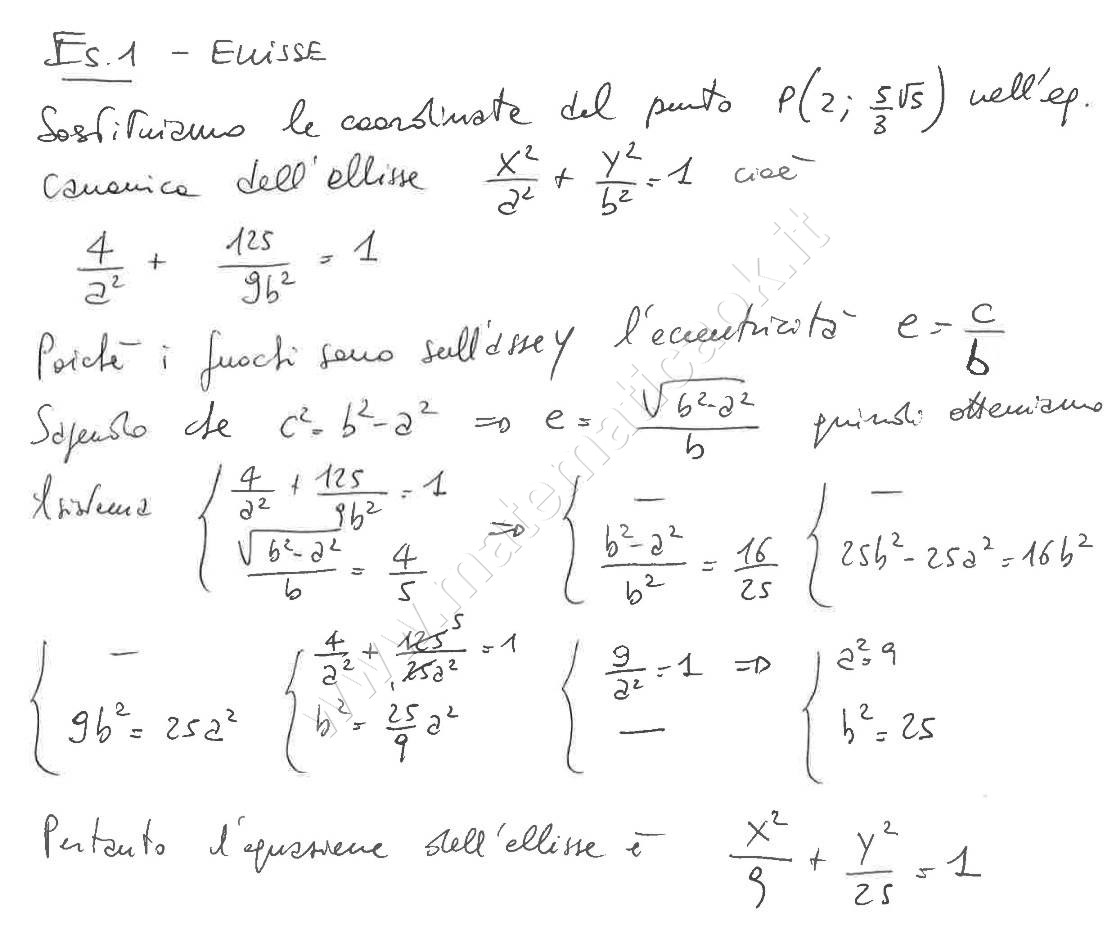 Es.1 - Ellisse
Sostituiamo le coordinate del punto P(2; 5/3 √5) nell'eq.
canonica dell'ellisse x²/a² + y²/b² = 1 cioè
4/a² + 125/9b² = 1
Poichè i fuochi sono sull'asse y l'eccentricità e = c/b
Sapendo che c² = b² - a² => e = √(b²-a²)/b quindi otteniamo
il sistema { 4/a² + 125/9b² = 1 ; √(b²-a²)/b = 4/5 => { — ; (b²-a²)/b² = 16/25 { — ; 25b² - 25a² = 16b²
{ — ; 9b² = 25a² { 4/a² + 125 5/25a² = 1 ; b² = 25/9 a² { 9/a² = 1 ; — => { a² = 9 ; b² = 25
Pertanto l'equazione dell'ellisse è x²/9 + y²/25 = 1
www.matematicaok.it